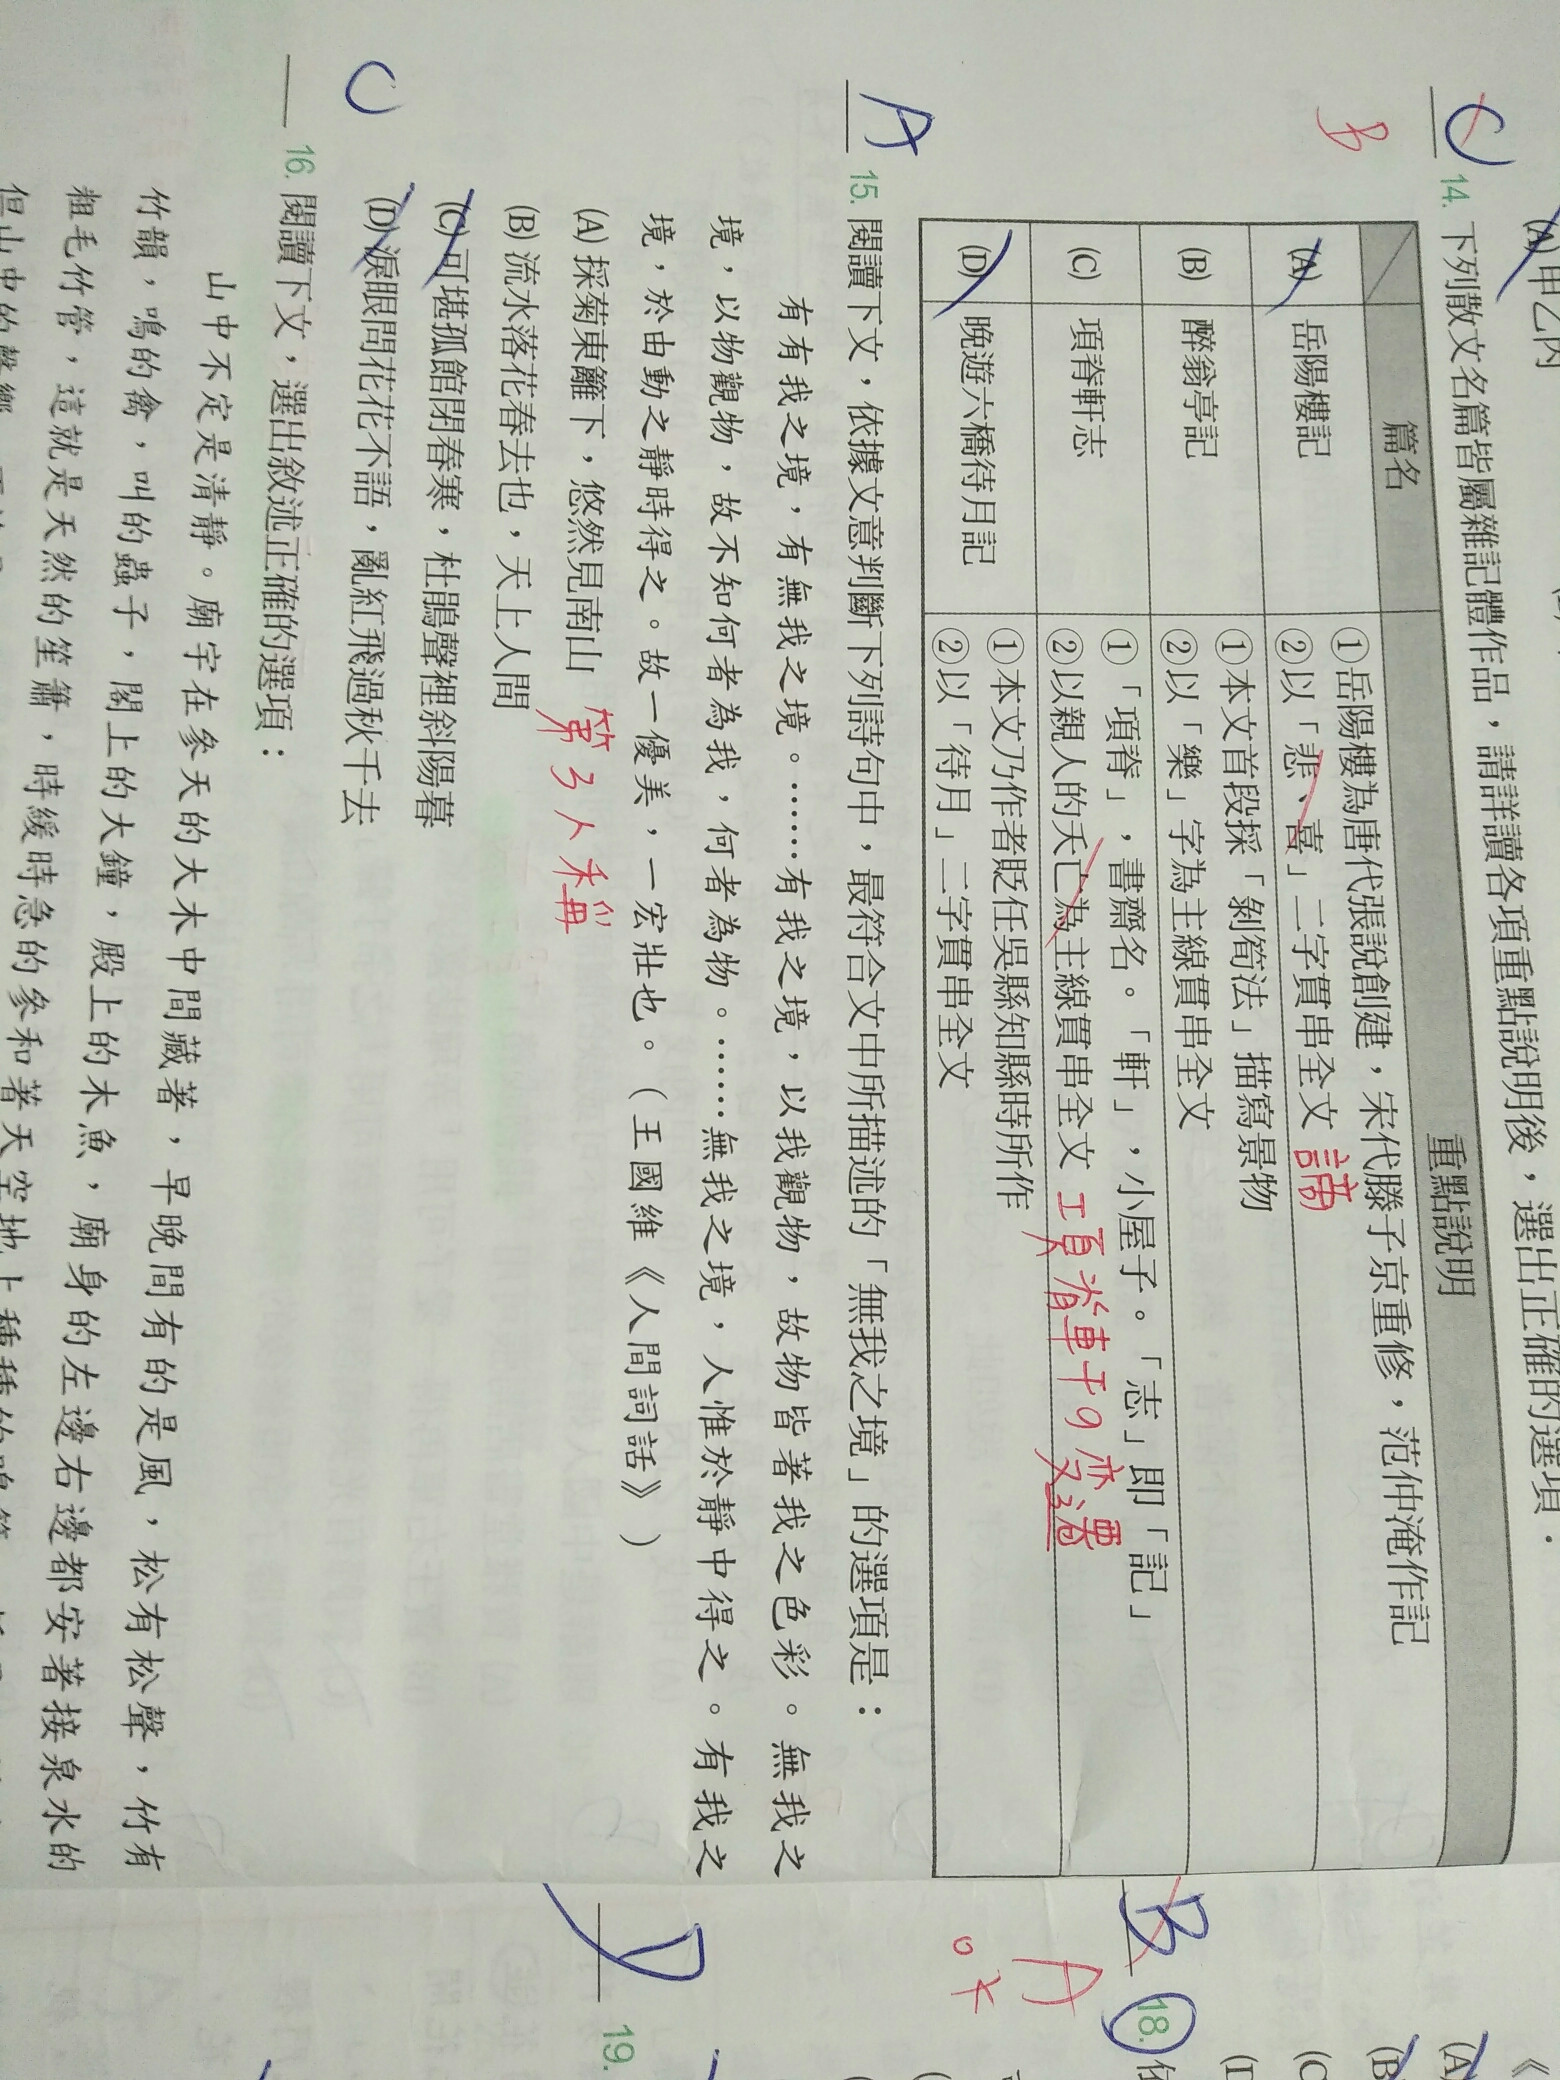 (A)甲乙丙
C
B
14. 下列散文名篇皆屬雜記體作品，請詳讀各項重點說明後，選出正確的選項：
篇名 重點說明
(A) 岳陽樓記 ①岳陽樓為唐代張說創建，宋代滕子京重修，范仲淹作記
②以「悲、喜」二字貫串全文 謫
(B) 醉翁亭記 ①本文首段採「剝筍法」描寫景物
②以「樂」字為主線貫串全文
(C) 項脊軒志 ①「項脊」，書齋名。「軒」，小屋子。「志」即「記」
②以親人的夭亡為主線貫串全文 項脊軒ㄉ變遷
(D) 晚遊六橋待月記 ①本文乃作者貶任吳縣知縣時所作
②以「待月」二字貫串全文
A
15. 閱讀下文，依據文意判斷下列詩句中，最符合文中所描述的「無我之境」的選項是：
有有我之境，有無我之境。……有我之境，以我觀物，故物皆著我之色彩。無我之
境，以物觀物，故不知何者為我，何者為物。……無我之境，人惟於靜中得之。有我之
境，於由動之靜時得之。故一優美，一宏壯也。（王國維《人間詞話》）
(A) 採菊東籬下，悠然見南山
(B) 流水落花春去也，天上人間
第3人稱
(C) 可堪孤館閉春寒，杜鵑聲裡斜陽暮
(D) 淚眼問花花不語，亂紅飛過秋千去
C
16. 閱讀下文，選出敘述正確的選項：
山中不定是清靜。廟宇在參天的大木中間藏著，早晚間有的是風，松有松聲，竹有
竹韻，鳴的禽，叫的蟲子，閣上的大鐘，殿上的木魚，廟身的左邊右邊都安著接泉水的
粗毛竹管，這就是天然的笙簫，時緩時急的參和著天空地上種種的鳴籟
但山中的聲響
《
(A)
(B)
(C
(D
B
A
0k
18. 依
D
19.